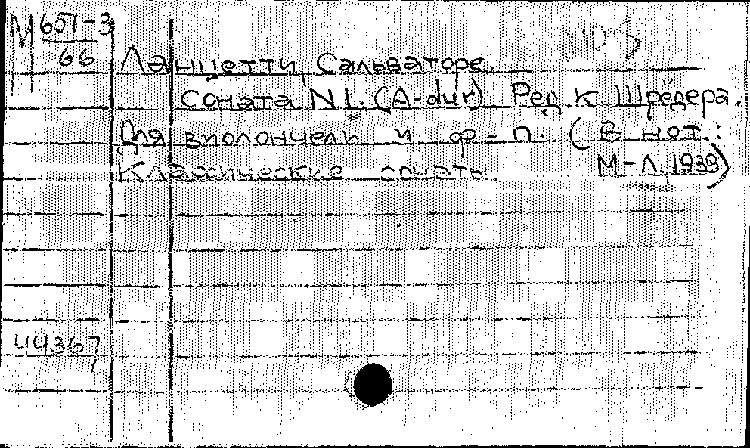 М 651-3
66
Ланцетти, Сальваторе.
Соната N 1. (A-dur) Ред. К. Шредера.
Для виолончели и ф-п. (В нот.:
Классические сонаты М-Л. 1939)
44367